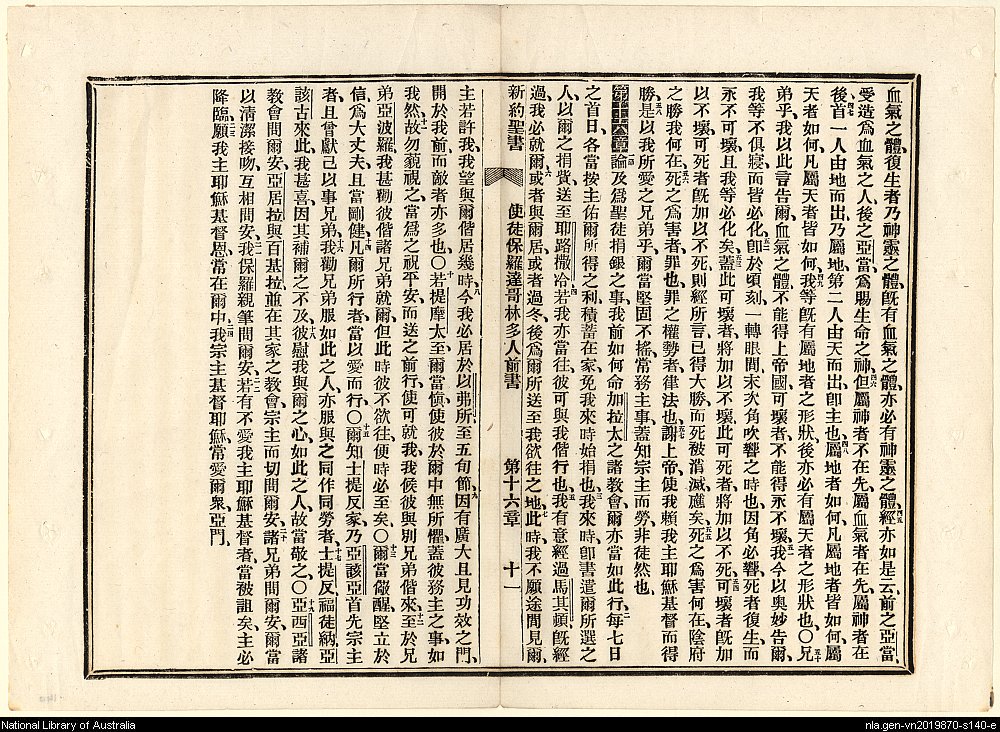 血氣之體、復生者乃神靈之體、旣有血氣之體、亦必有神靈之體、四五經亦如是云、前之亞當、
受造爲血氣之人、後之亞當、爲賜生命之神、四六但屬神者不在先、屬血氣者在先、屬神者在
後、四七首一人由地而出、乃屬地、第二人由天而出、卽主也、四八屬地者如何、凡屬地者皆如何、屬
天者如何、凡屬天者皆如何、四九我等旣有屬地者之形狀、後亦必有屬天者之形狀也、〇五十兄
弟乎、我以此言告爾、血氣之體、不能得上帝國、可壞者、不能得永不壞、五一我今以奧妙告爾、
我等不俱寢、而皆必化、五二卽於頃刻、一轉眼間、末次角吹響之時也、因角必響、死者復生而
永不可壞、且我等必化矣、五三蓋此可壞者、將加以不壞、此可死者、將加以不死、五四可壞者旣加
以不壞、可死者旣加以不死、則經所言已得大勝、而死被消滅應矣、五五死之爲害何在、陰府
之勝我何在、五六死之爲害者、罪也、罪之權勢者、律法也、五七謝上帝、使我賴我主耶穌基督而得
勝、五八是以我所愛之兄弟乎、爾當堅固不搖、常務主事、蓋知宗主而勞、非徒然也、
第十六章一論及爲聖徒捐銀之事、我前如何命加拉太之諸教會、爾亦當如此行、二每七日
之首日、各當按主佑爾所得之利、積蓄在家、免我來時始捐也、三我來時卽書遣爾所選之
人、以爾之捐貲、送至耶路撒冷、四若我亦當往、彼可與我偕行也、五我有意經過馬其頓、旣經
過、我必就爾、六或者與爾居、或者過冬、後爲爾所送至我欲往之地、七此時我不願途間見爾、
新約聖書 使徒保羅達哥林多人前書 第十六章 十一
主若許我、我望與爾偕居幾時、八今我必居於以弗所、至五旬節、九因有廣大且見功效之門、
開於我前、而敵者亦多也、〇十若提摩太至、爾當愼使彼於爾中無所懼、蓋彼務主之事如
我然、十一故勿藐視之、當爲之祝平安而送之前行、使可就我、我候彼與別兄弟偕來、十二至於兄
弟亞波羅、我甚勸彼偕諸兄弟就爾、但此時彼不欲往、便時必至矣、〇十三爾當儆醒、堅立於
信、爲大丈夫、且當剛健、十四凡爾所行者、當以愛而行、〇十五爾知士提反家、乃亞該亞首先宗主
者、且曾獻己以事兄弟、十六我勸兄弟服如此之人、亦服與之同作同勞者、十七士提反、福徒納、亞
該古來此、我甚喜、因其補爾之不及、十八彼慰我與爾之心、如此之人、故當敬之、〇十九亞西亞諸
教會問爾安、亞居拉與百基拉、並在其家之教會、宗主而切問爾安、二十諸兄弟問爾安、爾當
以清潔接吻、互相問安、二一我保羅親筆問爾安、二二若有不愛我主耶穌基督者、當被詛矣、主必
降臨、二三願我主耶穌基督恩、常在爾中、二四我宗主基督耶穌、常愛爾衆、亞門、
National Library of Australia
nla.gen-vn2019870-s140-e